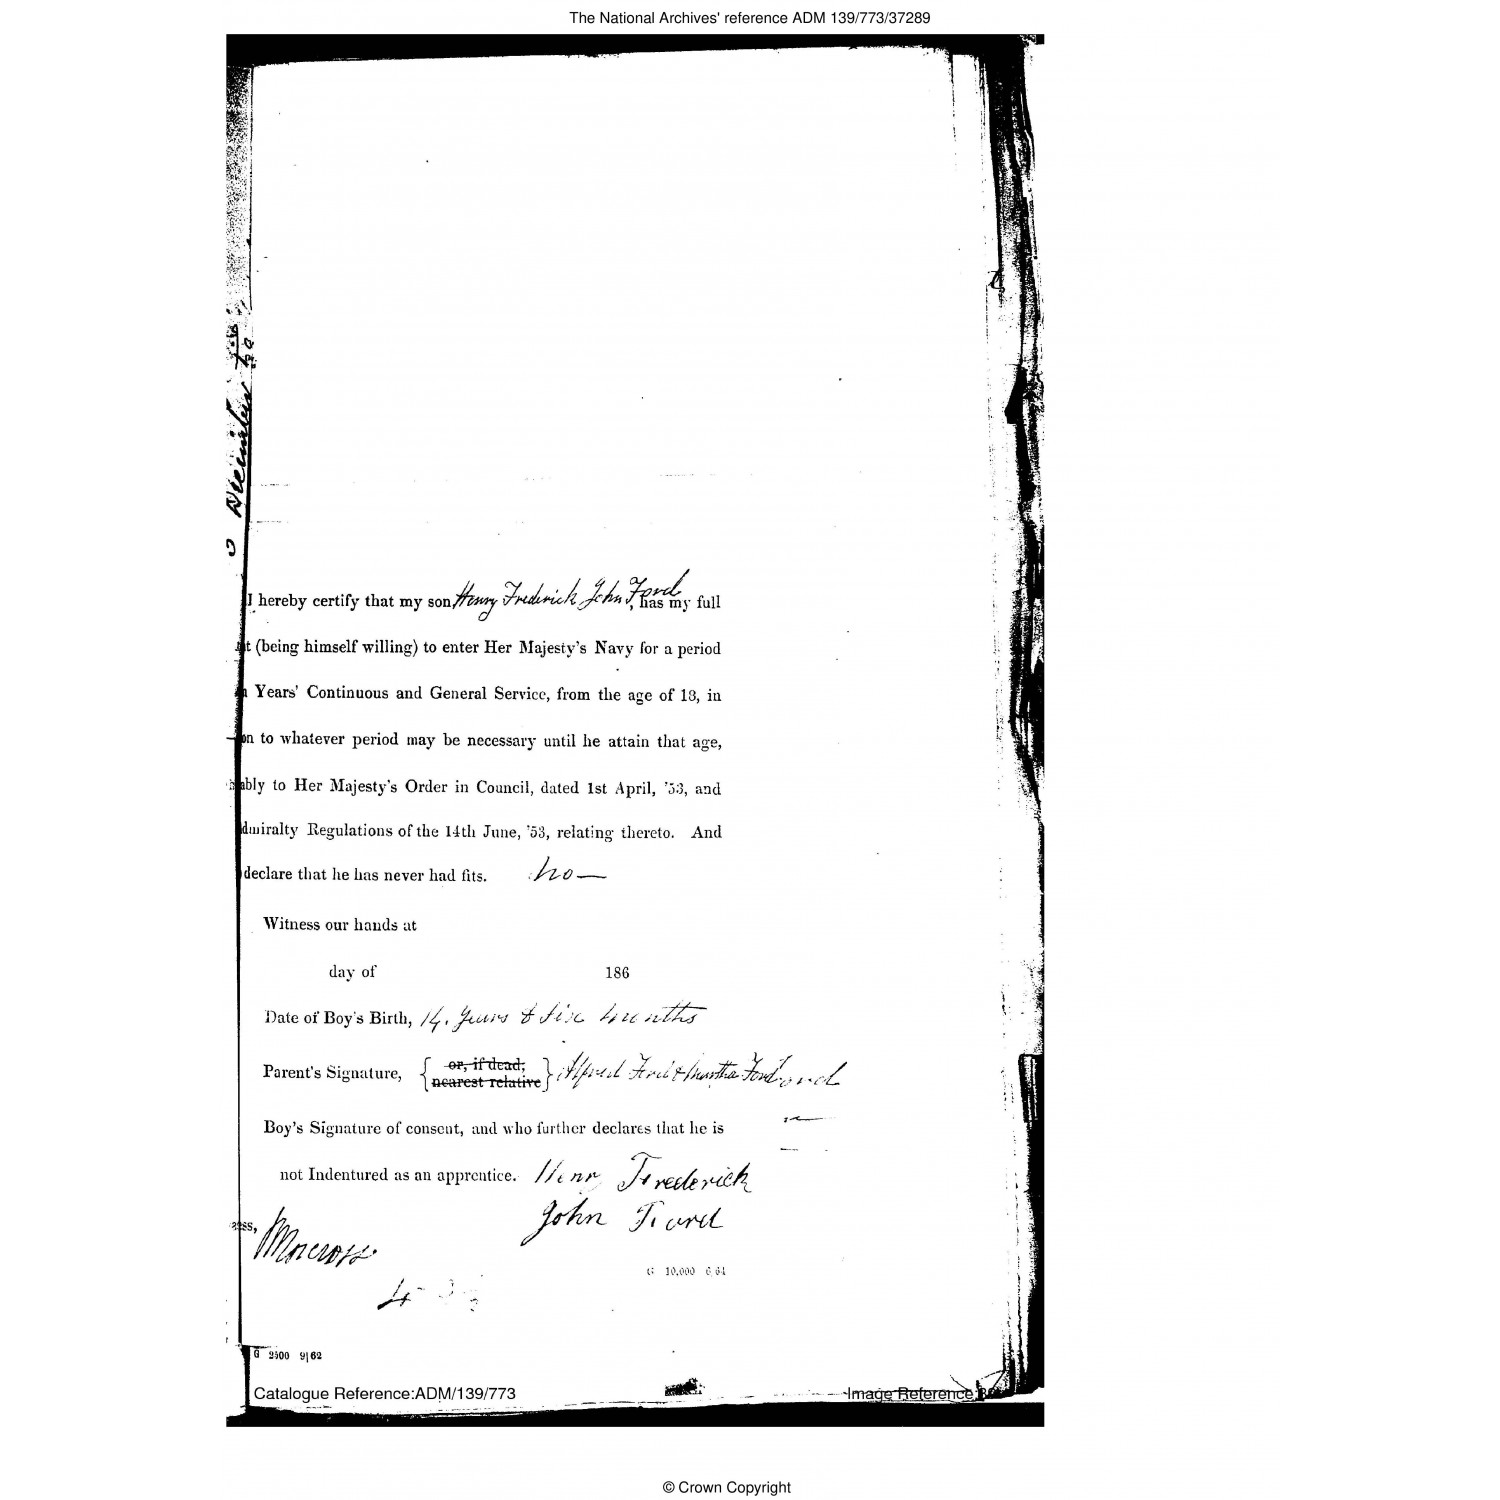 The National Archives' reference ADM 139/773/37289
December
I hereby certify that my son, Henry Frederick John Ford, has my full
t (being himself willing) to enter Her Majesty's Navy for a period
Years' Continuous and General Service, from the age of 18, in
on to whatever period may be necessary until he attain that age,
ably to Her Majesty's Order in Council, dated 1st April, '53, and
dmiralty Regulations of the 14th June, '53, relating thereto. And
declare that he has never had fits. no —
Witness our hands at
day of 186
Date of Boy's Birth, 14. Years & Six Months
Parent's Signature, { or, if dead, nearest relative } Alfred Ford & Martha Ford
Boy's Signature of consent, and who further declares that he is
not Indentured as an apprentice. Henry Frederick
John Ford
ess,
G 10,000 6 64
G 2500 9|62
Catalogue Reference:ADM/139/773
Image Reference:
© Crown Copyright